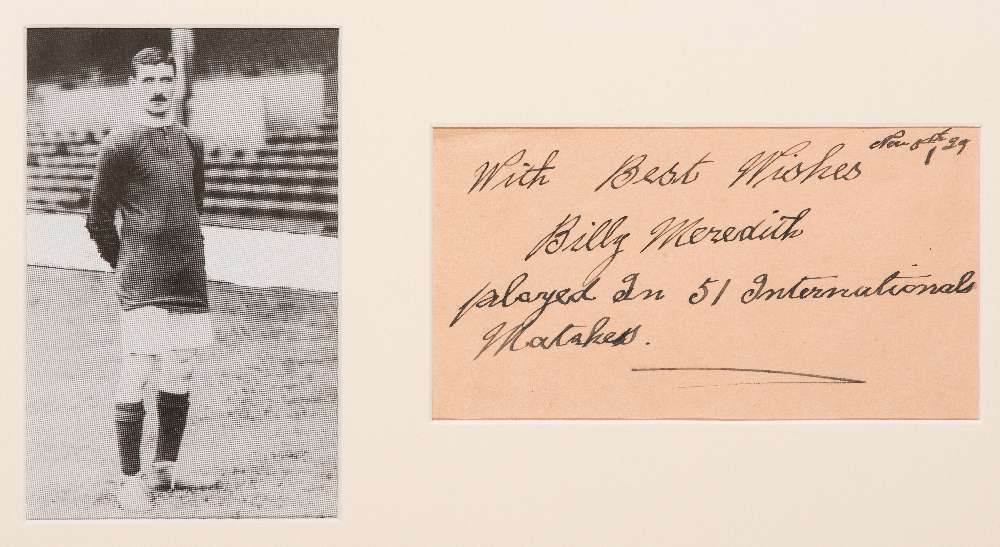 Nov 8th / 29
With Best Wishes
Billy Meredith
played In 51 Internationals
Matches.